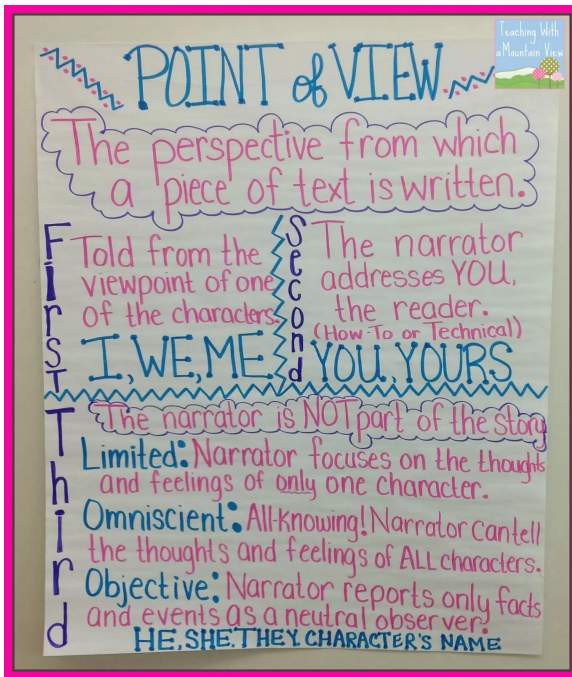 Teaching With
a Mountain View
POINT of VIEW
The perspective from which
a piece of text is written.
First
Told from the
viewpoint of one
of the characters.
I, WE, ME
Second
The narrator
addresses YOU,
the reader.
(How-To or Technical)
YOU, YOURS
Third
The narrator is NOT part of the story
Limited: Narrator focuses on the thoughts
and feelings of only one character.
Omniscient: All-Knowing! Narrator can tell
the thoughts and feelings of ALL characters.
Objective: Narrator reports only facts
and events as a neutral observer.
HE, SHE, THEY, CHARACTER'S NAME